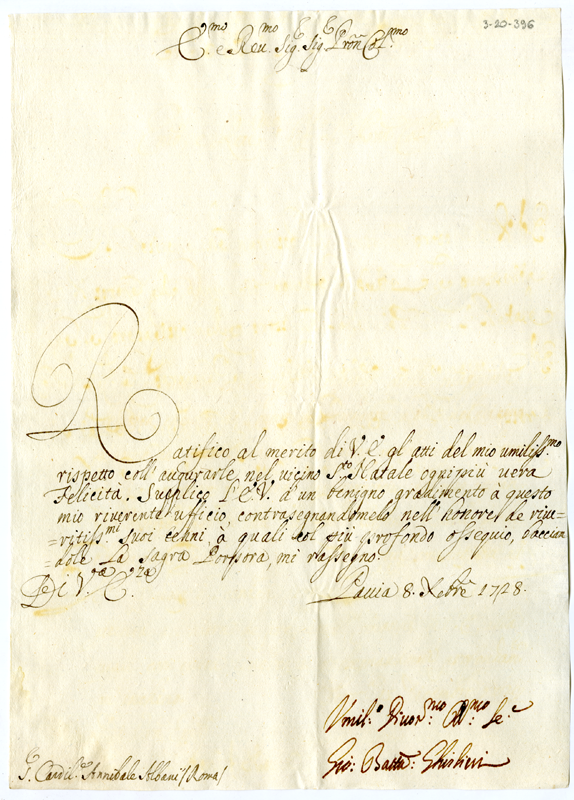 3-20-396
E.mo e Reu.mo Sig.r Sig.r Pron Col.mo
Ratifico al merito di V.E. gl'atti del mio umiliss.mo
rispetto coll'augurarle nel vicino S.to Natale ogni più vera
Felicità. Supplico l'E.V. d'un benigno gradimento à questo
mio riverente ufficio, contrasegnandomelo nell'honore de riue=
=ritiss.mi suoi cenni, à quali col più profondo ossequio, bacian=
=dole La Sagra Porpora, mi rassegno.
Di V.ra E.za
Pauia 8. Xebre 1728.
Vmil.o Diuot.mo Obl.mo Se.e
Gio: Batta: Ghislieri
S. Cardil.e Annibale Albani (Roma)